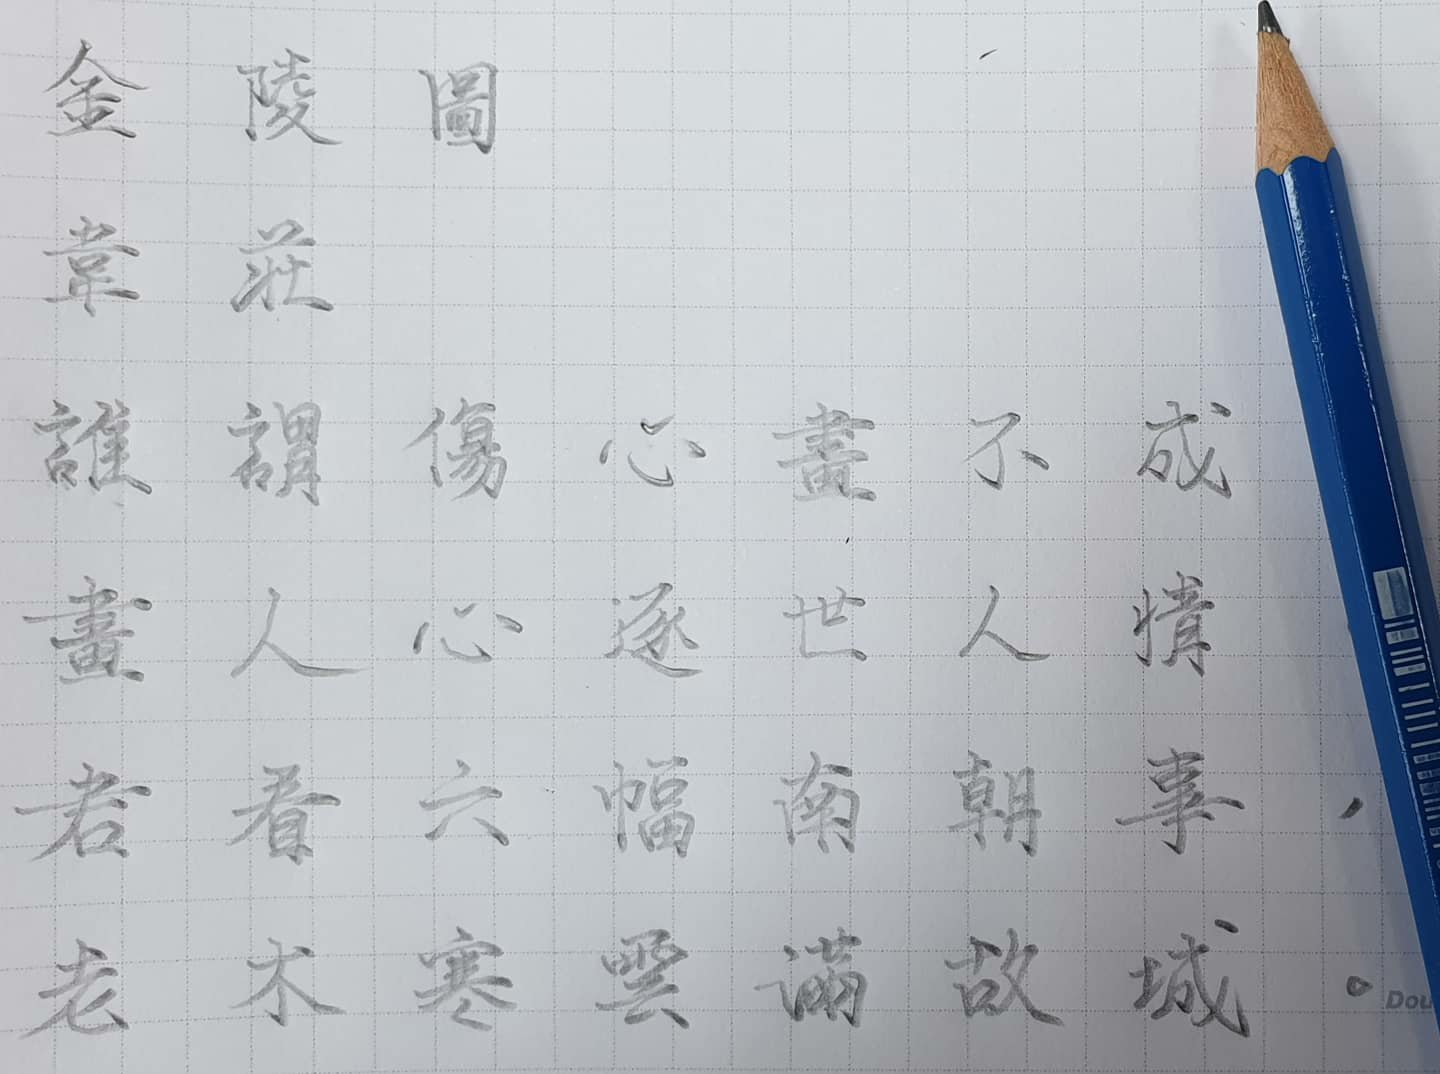 金陵圖
韋莊
誰謂傷心畫不成
畫人心逐世人情
君看六幅南朝事，
老木寒雲滿故城。